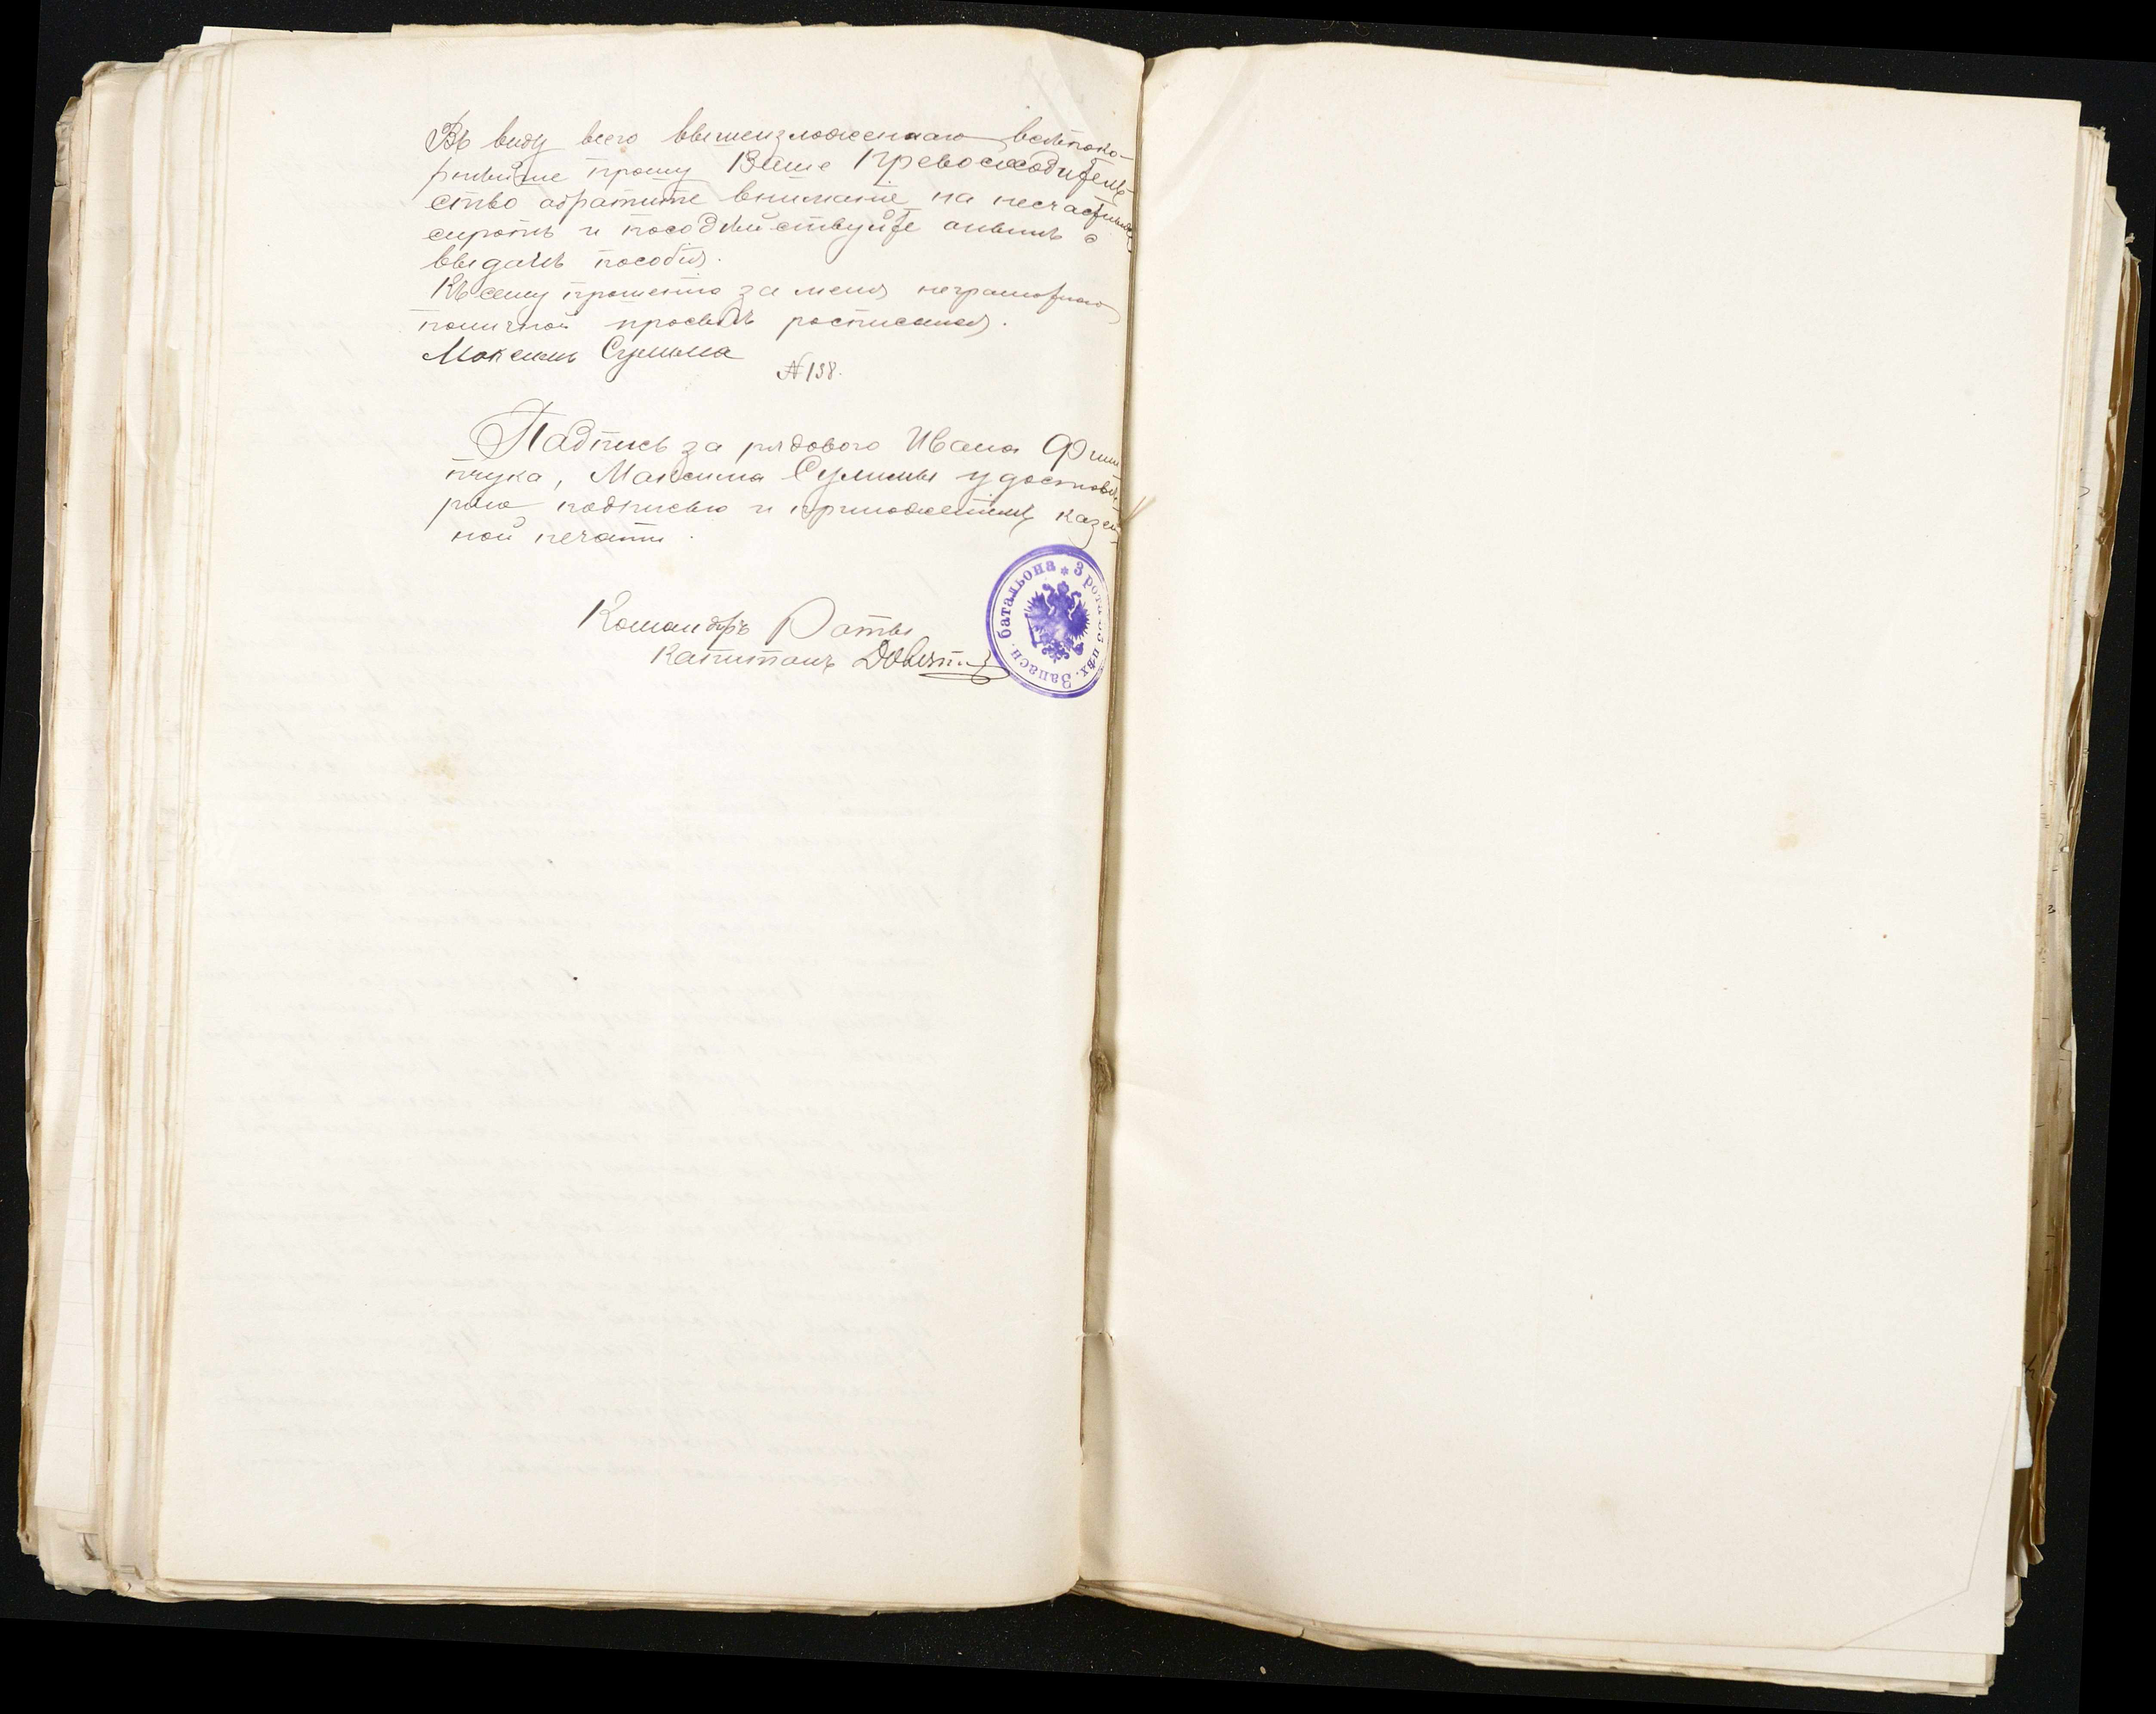 Въ виду всего вышеизложеннаго всепоко-
рнѣйше прошу Ваше Превосходитель-
ство обратите вниманіе на несчастныхъ
сиротъ и посодѣйствуйте онымъ о
выдачѣ пособія.
Къ сему прошенію за меня неграмотнаго
по личной просьбѣ росписался.
Максимъ Сулима
№ 138.
Подпись за рядового Ивана Филип-
пчука, Максима Сулимы удостовѣ-
ряю подписью и приложеніемъ казен-
ной печати.
Командиръ Роты
Капитанъ
3 рота пѣх. Запасн. батальона *